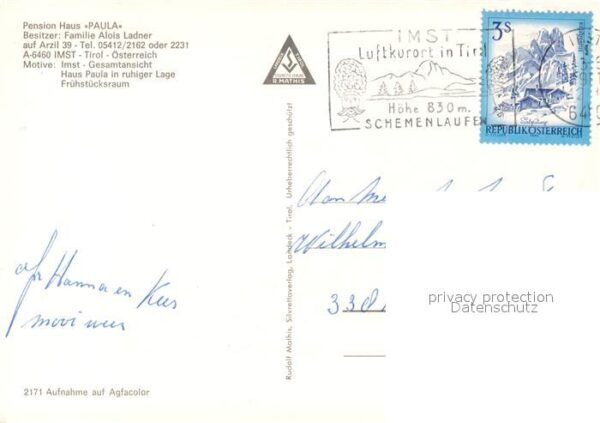 Pension Haus »PAULA«
Besitzer: Familie Alois Ladner
auf Arzil 39 - Tel. 05412/2162 oder 2231
A-6460 IMST - Tirol - Österreich
Motive: Imst - Gesamtansicht
Haus Paula in ruhiger Lage
Frühstücksraum
R. MATHIS
IMST
Luftkurort in Tirol
Höhe 830 m.
SCHEMENLAUFEN
3s
REPUBLIK ÖSTERREICH
Aan
Wilhelm
338
privacy protection
Datenschutz
afz Hanna en Kees
mooi weer
Rudolf Mathis, Silvrettaverlag, Landeck - Tirol. Urheberrechtlich geschützt
2171 Aufnahme auf Agfacolor